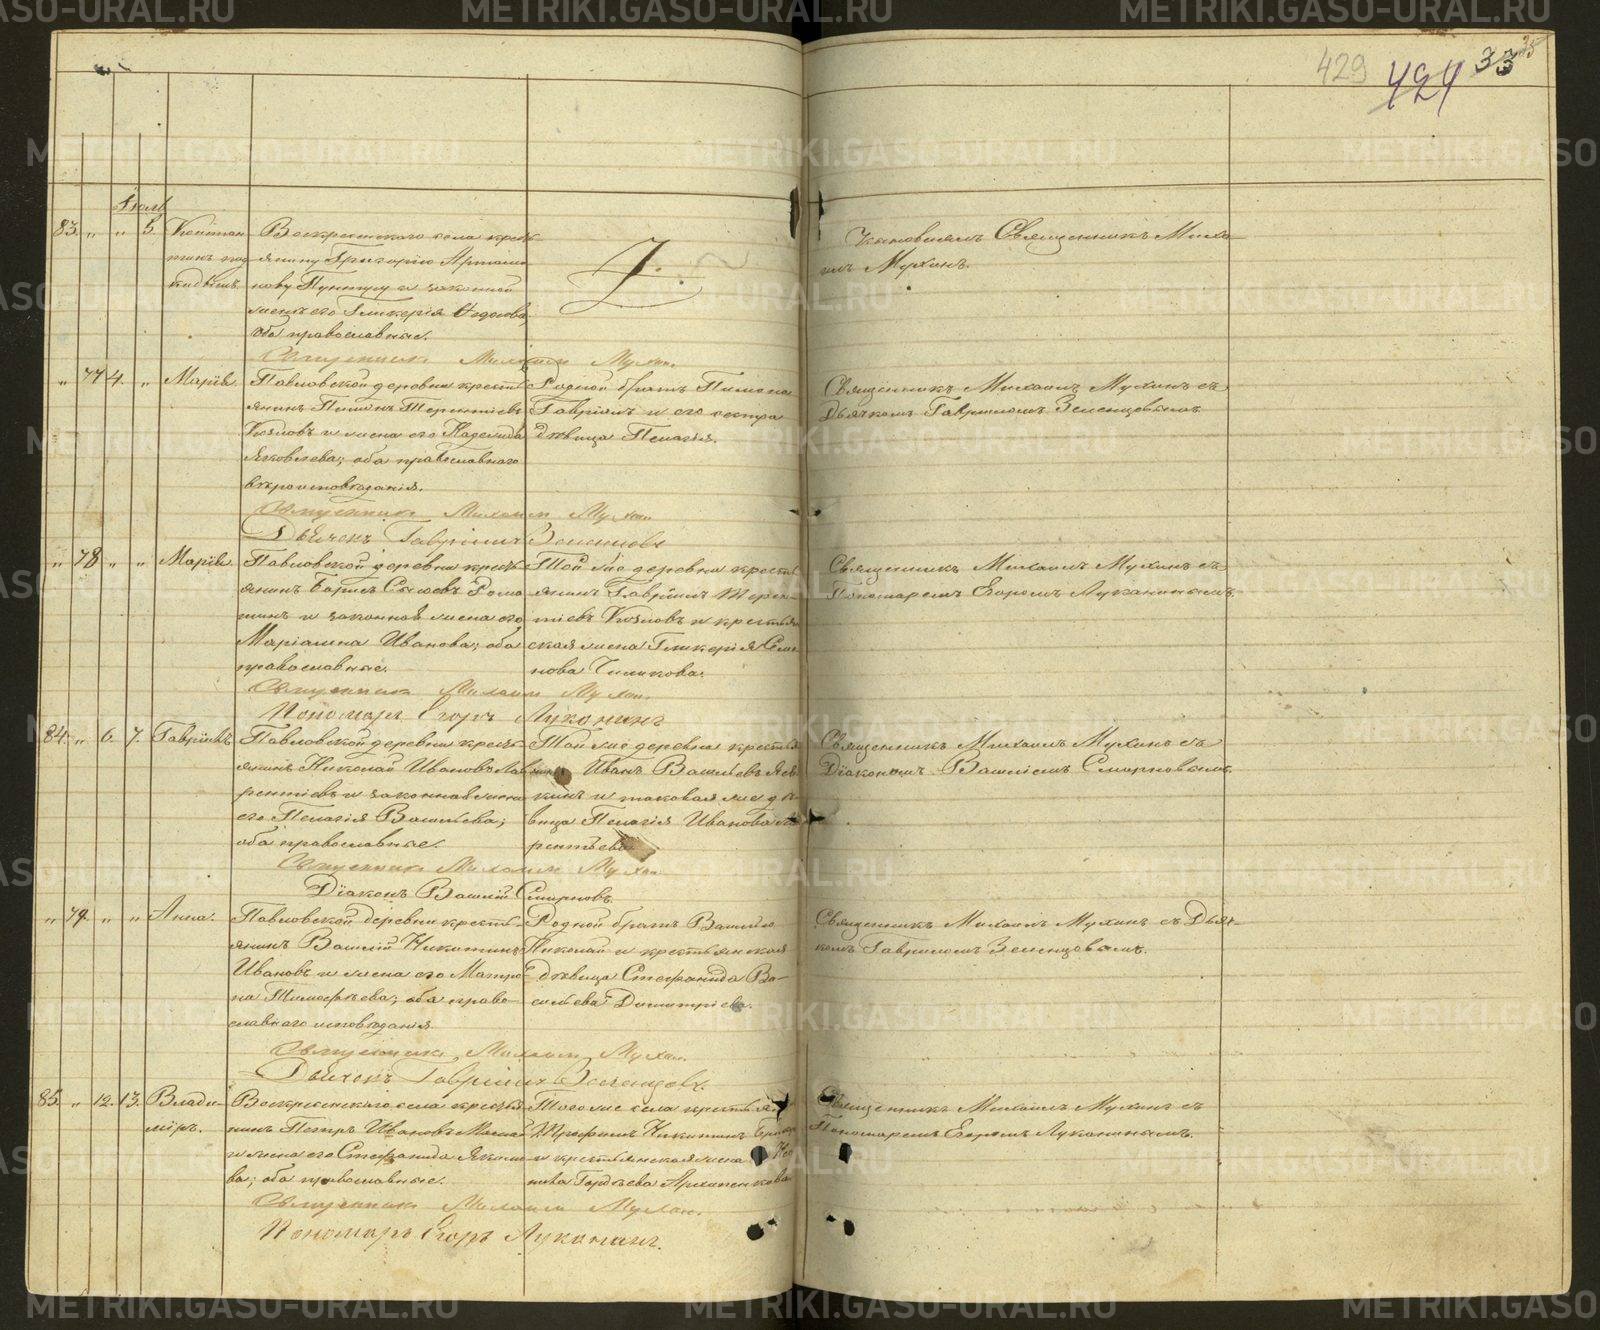 METRIKI.GASO-URAL.RU
429 424 33
Іюль
83. " " 5. Константинъ подкидышъ
Воскресенскаго села крестьянину Григорію
нову и законной
женѣ его Гликеріи
оба православные.
Священникъ Михаилъ Мухинъ.
Священникъ Михаилъ Мухинъ.
" 77 4. " Марія.
Павловской деревни крестьянинъ Пименъ Терентіевъ
Козловъ и жена его Надежда
Яковлева; оба православнаго
вѣроисповѣданія.
Родной братъ Пимена
Гавріилъ и его сестра
дѣвица Пелагія.
Священникъ Михаилъ Мухинъ съ
Дьячкомъ Гавриломъ Зеленцовымъ.
Священникъ Михаилъ Мухинъ
Дьячекъ Гавріилъ Зеленцовъ
" 78 " " Марія.
Павловской деревни крестьянинъ Борисъ
и законная жена его
Маріамна Иванова; оба
православные.
Той же деревни крестьянинъ Гавріилъ Терентіевъ Козловъ и крестьянская жена Гликерія
Священникъ Михаилъ Мухинъ съ
Пономаремъ Егоромъ Луканинымъ.
Священникъ Михаилъ Мухинъ.
Пономарь Егоръ Луканинъ
84. " 6. 7. Гавріилъ
Павловской деревни крестьянинъ Николай Ивановъ Лаврентіевъ и законная жена
его Пелагія Васильева;
оба православные.
Той же деревни крестьянинъ Иванъ Васильевъ
и таковая же дѣвица Пелагія Иванова Лаврентьева.
Священникъ Михаилъ Мухинъ съ
Діакономъ Василіемъ Смирновымъ.
Священникъ Михаилъ Мухинъ
Діаконъ Василій Смирновъ.
" 79. " " Анна.
Павловской деревни крестьянинъ Василій Никитинъ
Ивановъ и жена его Матрона Тимофѣева; оба православнаго исповѣданія.
Родной братъ Василія
Николай и крестьянская
дѣвица Стефанида Васильева Димитріева.
Священникъ Михаилъ Мухинъ съ Дьячкомъ Гавриломъ Зеленцовымъ.
Священникъ Михаилъ Мухинъ.
Дьячекъ Гавріилъ Зеленцовъ.
85. " 12. 13. Владиміръ.
Воскресенскаго села крестьянинъ Петръ Ивановъ
и жена его Стефанида
оба православные.
Того же села крестьянинъ
Трофимъ Никитинъ
и крестьянская жена
Гордѣева
Священникъ Михаилъ Мухинъ съ
Пономаремъ Егоромъ Луканинымъ.
Священникъ Михаилъ Мухинъ.
Пономарь Егоръ Луканинъ.